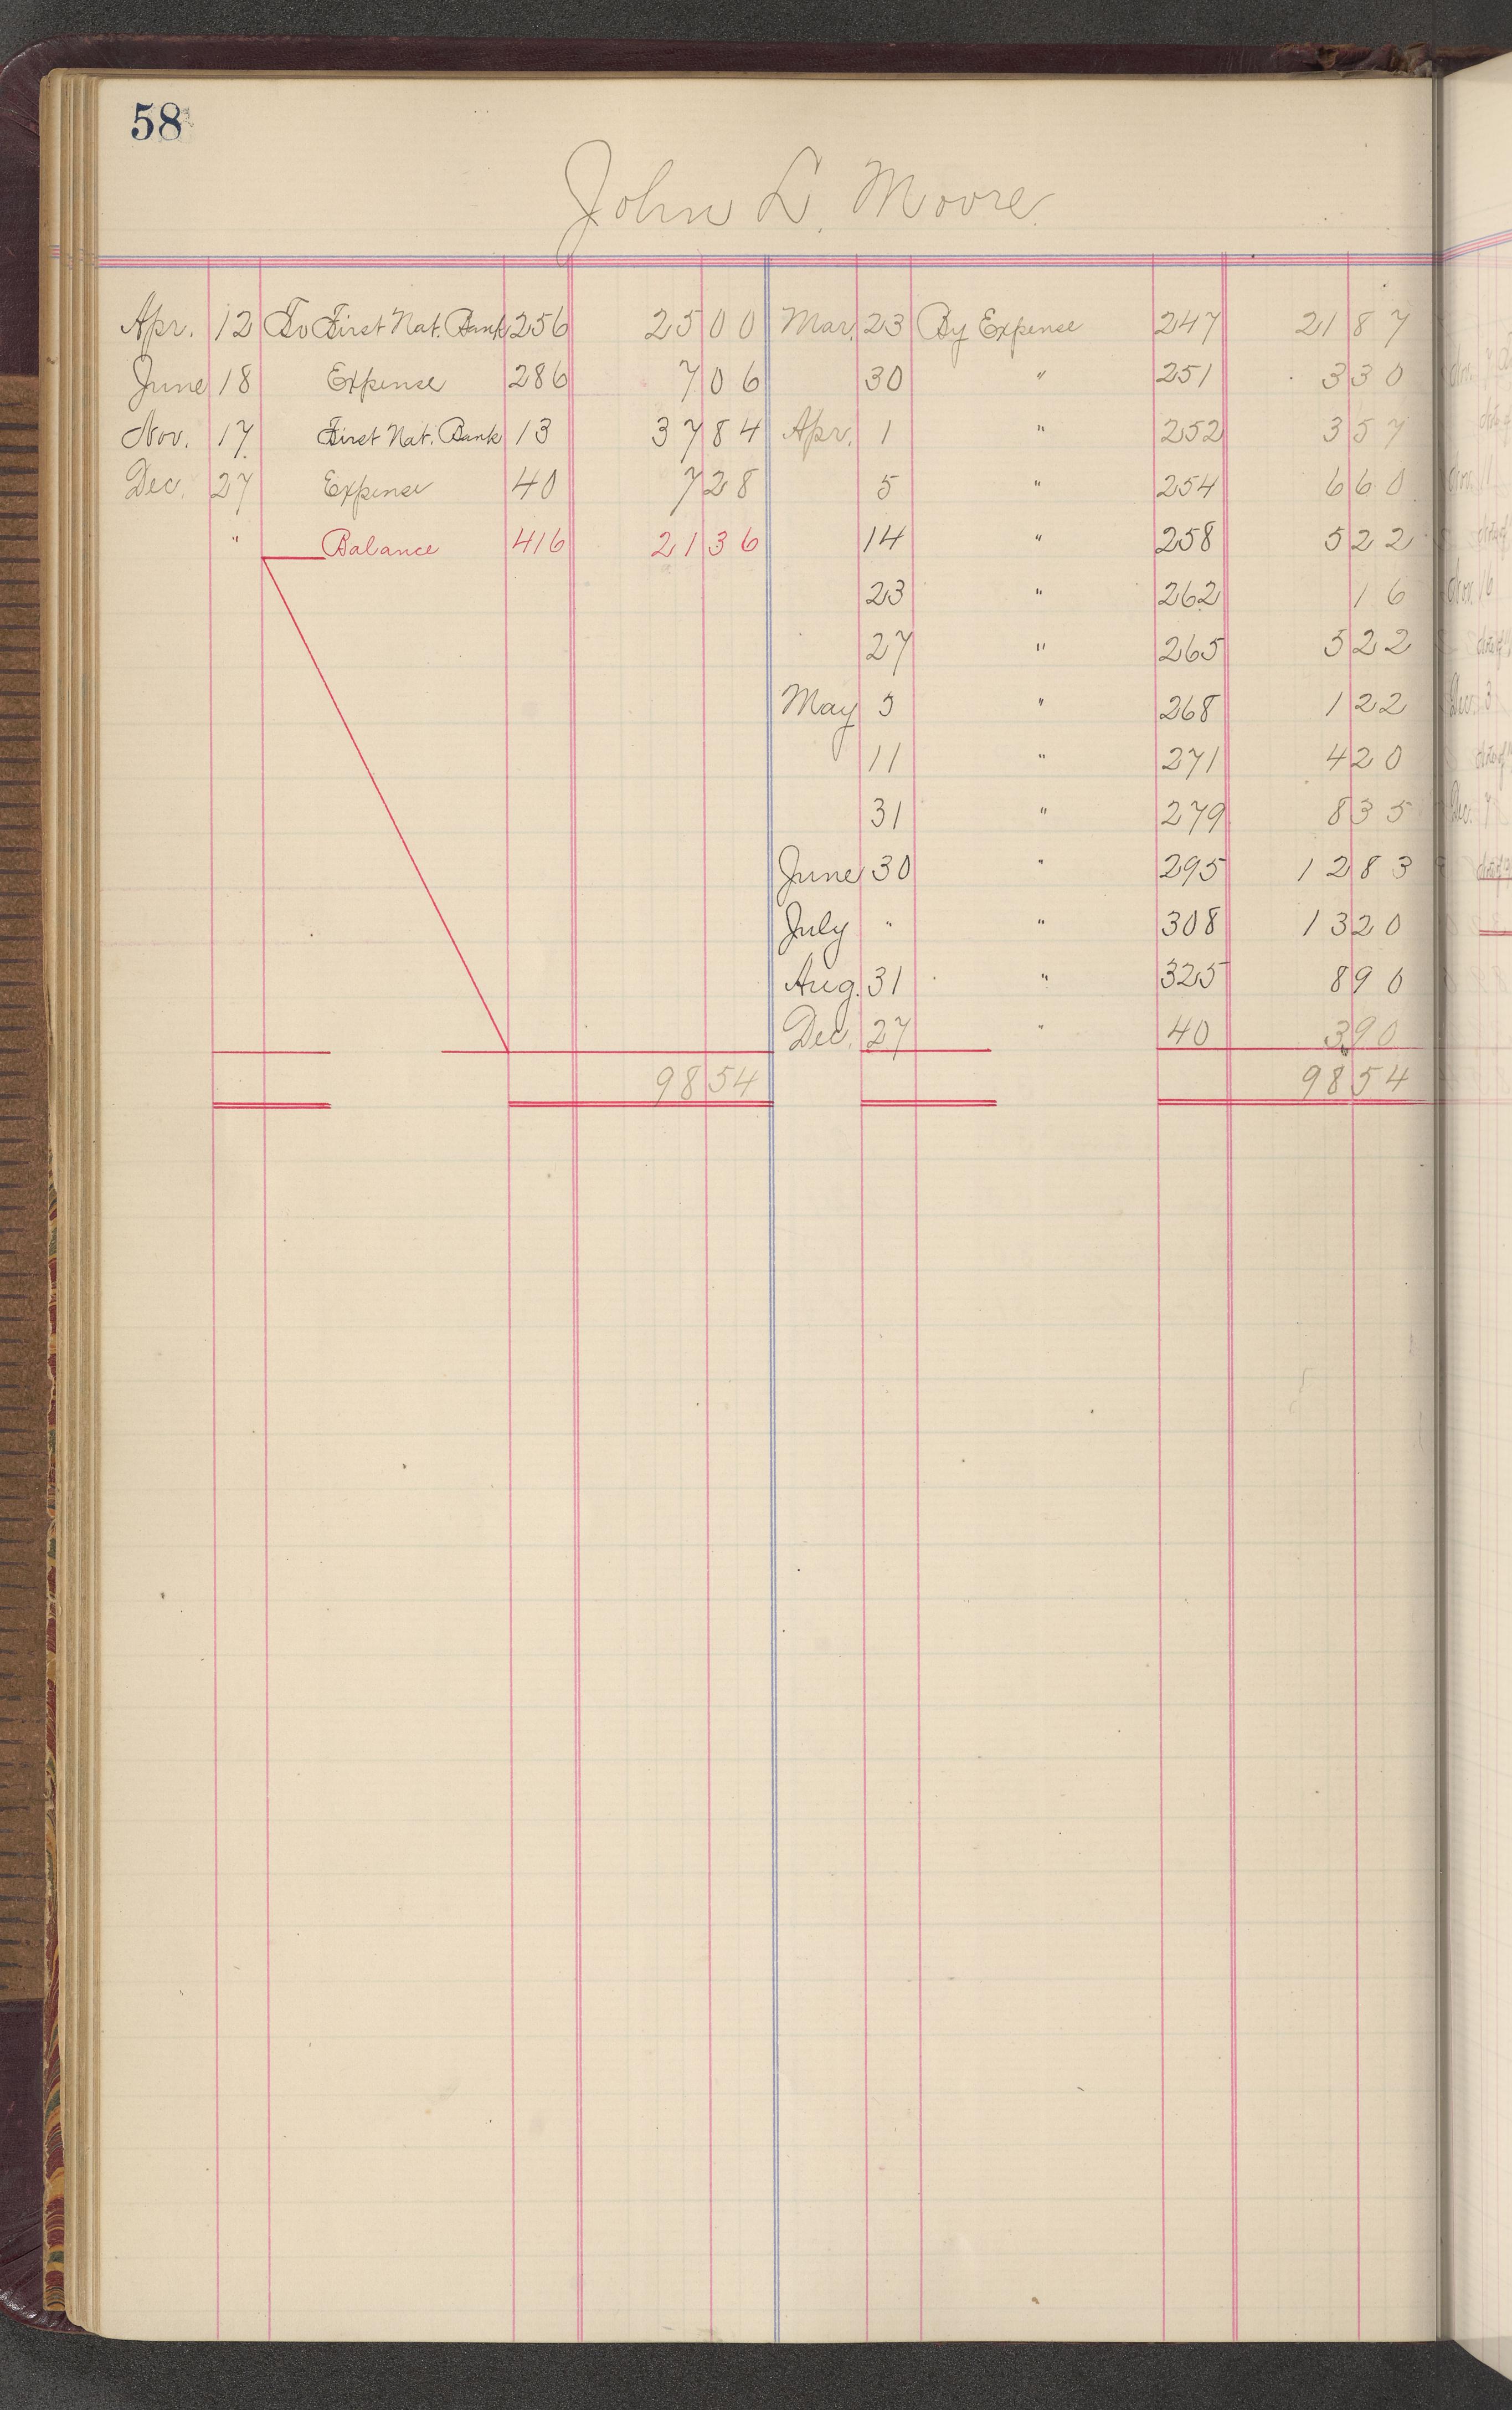 58
John L. Moore.
Apr. 12 To First Nat. Bank 256 25 00 Mar. 23 By Expense 247 21 87
June 18 Expense 286 7 06 30 " 251 3 30
Nov. 17 First Nat. Bank 13 37 84 Apr. 1 " 252 3 57
Dec. 27 Expense 40 7 28 5 " 254 6 60
" Balance 416 21 36 14 " 258 5 22
23 " 262 16
27 " 265 5 22
May 5 " 268 1 22
11 " 271 4 20
31 " 279 8 35
June 30 " 295 12 83
July " " 308 13 20
Aug. 31 " 325 8 90
Dec. 27 " 40 3 90
98 54 98 54